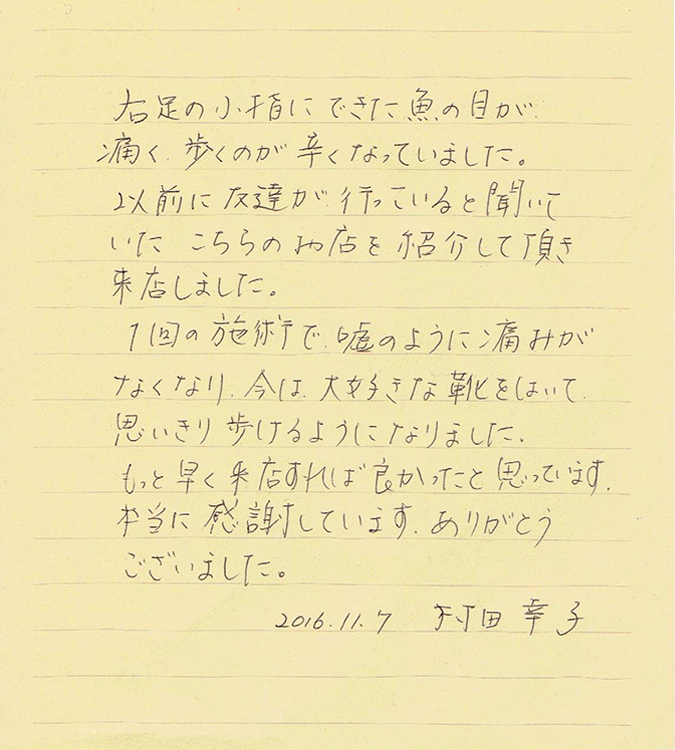 右足の小指にできた魚の目が
痛く、歩くのが辛くなっていました。
以前に友達が行っていると聞いて
いたこちらのお店を紹介して頂き
来店しました。
1回の施術で、嘘のように痛みが
なくなり、今は、大好きな靴をはいて、
思いきり歩けるようになりました。
もっと早く来店すれば良かったと思っています。
本当に感謝しています。ありがとう
ございました。
2016.11.7 村田幸子